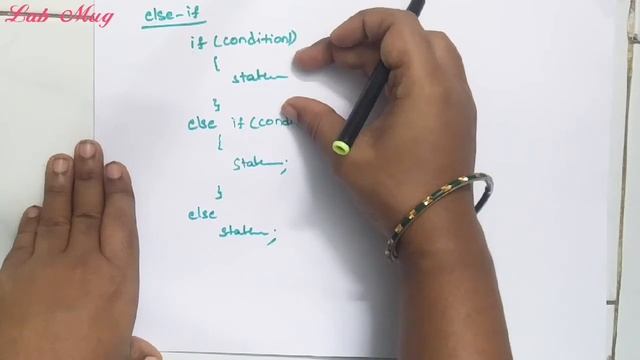 Lab Mug
else-if
if (condition1)
{
statem
}
else if (condi
{
statem;
}
else
statem;